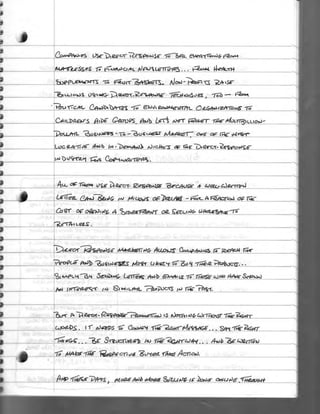 COMPANIES USE DIRECT RESPONSE TO SELL EVERYTHING FROM
MATTRESSES TO FINANCIAL NEWSLETTERS... FROM HEALTH
SUPPLEMENTS TO FRUIT BASKETS. NON-PROFITS RAISE
BILLIONS USING DIRECT-RESPONSE TECHNIQUES, TOO — FROM
POLITICAL CANDIDATES TO ENVIRONMENTAL ORGANIZATIONS TO
CHILDREN'S AIDE GROUPS. AND LET'S NOT FORGET THE MULTIBILLION-
DOLLAR BUSINESS-TO-BUSINESS MARKET, ONE OF THE MOST
LUCRATIVE AND IN-DEMAND NICHES OF THE DIRECT-RESPONSE
INDUSTRY FOR COPYWRITERS.
ALL OF THEM USE DIRECT RESPONSE BECAUSE A WELL-WRITTEN
LETTER CAN BRING IN MILLIONS OF DOLLARS - FOR A FRACTION OF THE
COST OF OPENING A STOREFRONT OR SELLING WHOLESALE TO
RETAILERS.
DIRECT RESPONSE MARKETING ALLOWS COMPANIES TO REACH THE
PEOPLE AND BUSINESSES MOST LIKELY TO BUY THEIR PRODUCTS...
SIMPLY BY SENDING LETTERS AND EMAILS TO THOSE WHO HAVE SHOWN
AN INTEREST IN SIMILAR PRODUCTS IN THE PAST.
BUT A DIRECT-RESPONSE PROMOTION IS NOTHING WITHOUT THE RIGHT
WORDS. IT NEEDS TO CONVEY THE RIGHT MESSAGE... SAY THE RIGHT
THINGS... BE STRUCTURED IN THE RIGHT WAY... AND BE WRITTEN
TO MAKE THE PROSPECTIVE BUYER TAKE ACTION.
AND THESE DAYS, MORE AND MORE SELLING IS DONE ONLINE, THROUGH